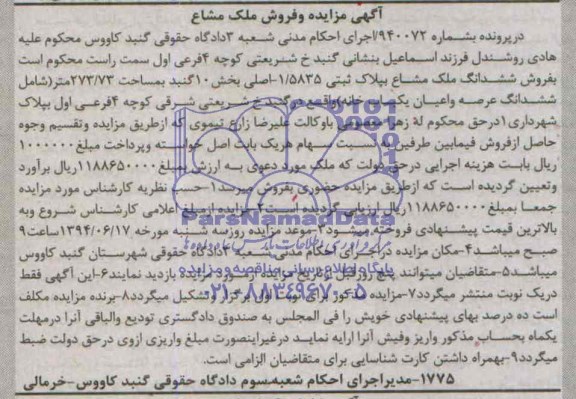 آگهی مزایده وفروش ملک مشاع
درپرونده بشماره ۹۴۰۰۷۲/اجرای احکام مدنی شعبه ۳دادگاه حقوقی گنبد کاووس محکوم علیه
هادی روشندل فرزند اسماعیل بنشانی گنبد خ شریعتی کوچه ۴فرعی اول سمت راست محکوم است
بفروش ششدانگ ملک مشاع بپلاک ثبتی ۱/۵۸۳۵-اصلی بخش۱۰گنبد بمساحت ۲۷۳/۷۳متر(شامل
ششدانگ عرصه واعیان یکباب خانه)واقع درگنبد خ شریعتی شرقی کوچه ۴فرعی اول بپلاک
شهرداری۱درحق محکوم لهٔ زهرا معصومی باوکالت علیرضا زارع تیموی که ازطریق مزایده وتقسیم وجوه
حاصل ازفروش فیمابین طرفین به نسبت سهام هریک بابت اصل خواسته وپرداخت مبلغ ۱۰۰۰۰۰۰
ریال بابت هزینه اجرایی درحق دولت که ملک مورد دعوی به ارزش مبلغ۱۱۸۸۶۵۰۰۰۰ریال برآورد
وتعیین گردیده است که ازطریق مزایده حضوری بفروش میرسد۱-حسب نظریه کارشناس مورد مزایده
جمعا بمبلغ۱۱۸۸۶۵۰۰۰۰ریال ارزیابی گردیده است۲-مزایده ازمبلغ اعلامی کارشناس شروع وبه
بالاترین قیمت پیشنهادی فروخته میشود۳-موعد مزایده روزسه شنبه مورخه ۱۳۹۴/۰۶/۱۷ساعت۹
صبح میباشد۴-مکان مزایده دراجرای احکام مدنی شعبه ۳دادگاه حقوقی شهرستان گنبد کاووس
میباشد۵-متقاضیان میتوانند پنج روزقبل ازتاریخ مزایده ازملک مورد مزایده بازدید نمایند۶-این آگهی فقط
دریک نوبت منتشر میگردد۷-مزایده مذکور برای نوبت اول برگزار وتشکیل میگردد۸-برنده مزایده مکلف
است ده درصد بهای پیشنهادی خویش را فی المجلس به صندوق دادگستری تودیع والباقی آنرا درمهلت
یکماه بحساب مذکور واریز وفیش آنرا ارایه نمایند درغیراینصورت مبلغ واریزی ازوی درحق دولت ضبط
میگردد۹-بهمراه داشتن کارت شناسایی برای متقاضیان الزامی است.
۱۷۷۵-مدیراجرای احکام شعبه سوم دادگاه حقوقی گنبد کاووس-خرمالی
ParsNamadData
پایگاه اطلاع رسانی مناقصه و مزایده
۰۲۱-۸۸۳۴۹۶۷۰-۵